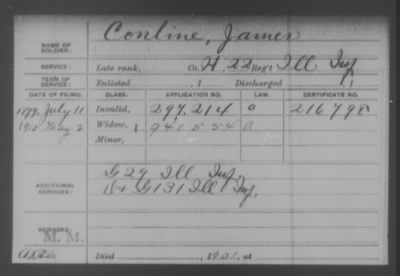 NAME OF SOLDIER: Conline, James
SERVICE: Late rank, Co. H, 22 Reg't Ill Inf.
TERM OF SERVICE: Enlisted , 1 Discharged , 1
DATE OF FILING. CLASS. APPLICATION NO. LAW. CERTIFICATE NO.
1879, July 11 Invalid, 297,214 0 216798
May 2 Widow, 941554 0
Minor,
ADDITIONAL SERVICES: G 29 Ill Inf.
G 131 Ill Inf.
REMARKS: M. M.
Died , 1921, at